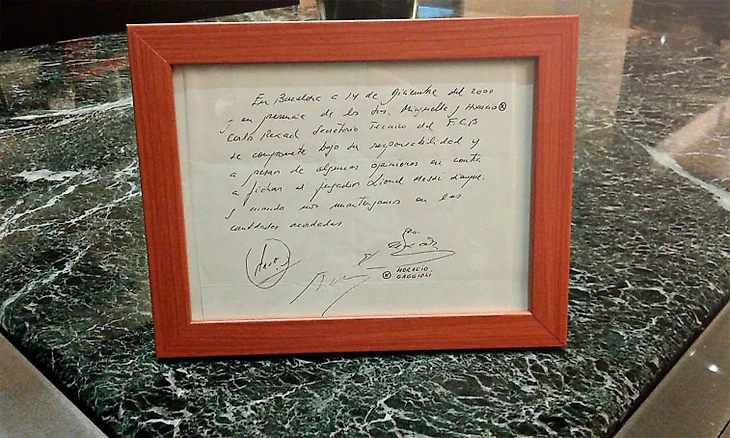 En Barcelona a 14 de diciembre del 2000
y en presencia de los Srs. Minguella y Horacio ⓧ
Carlos Rexach Secretario Técnico del F.C.B
se compromete bajo su responsabilidad y
a pesar de algunas opiniones en contra
a fichar al jugador Lionel Messi siempre
y cuando nos mantengamos en las
cantidades acordadas
ⓧ HORACIO
GAGGIOLI